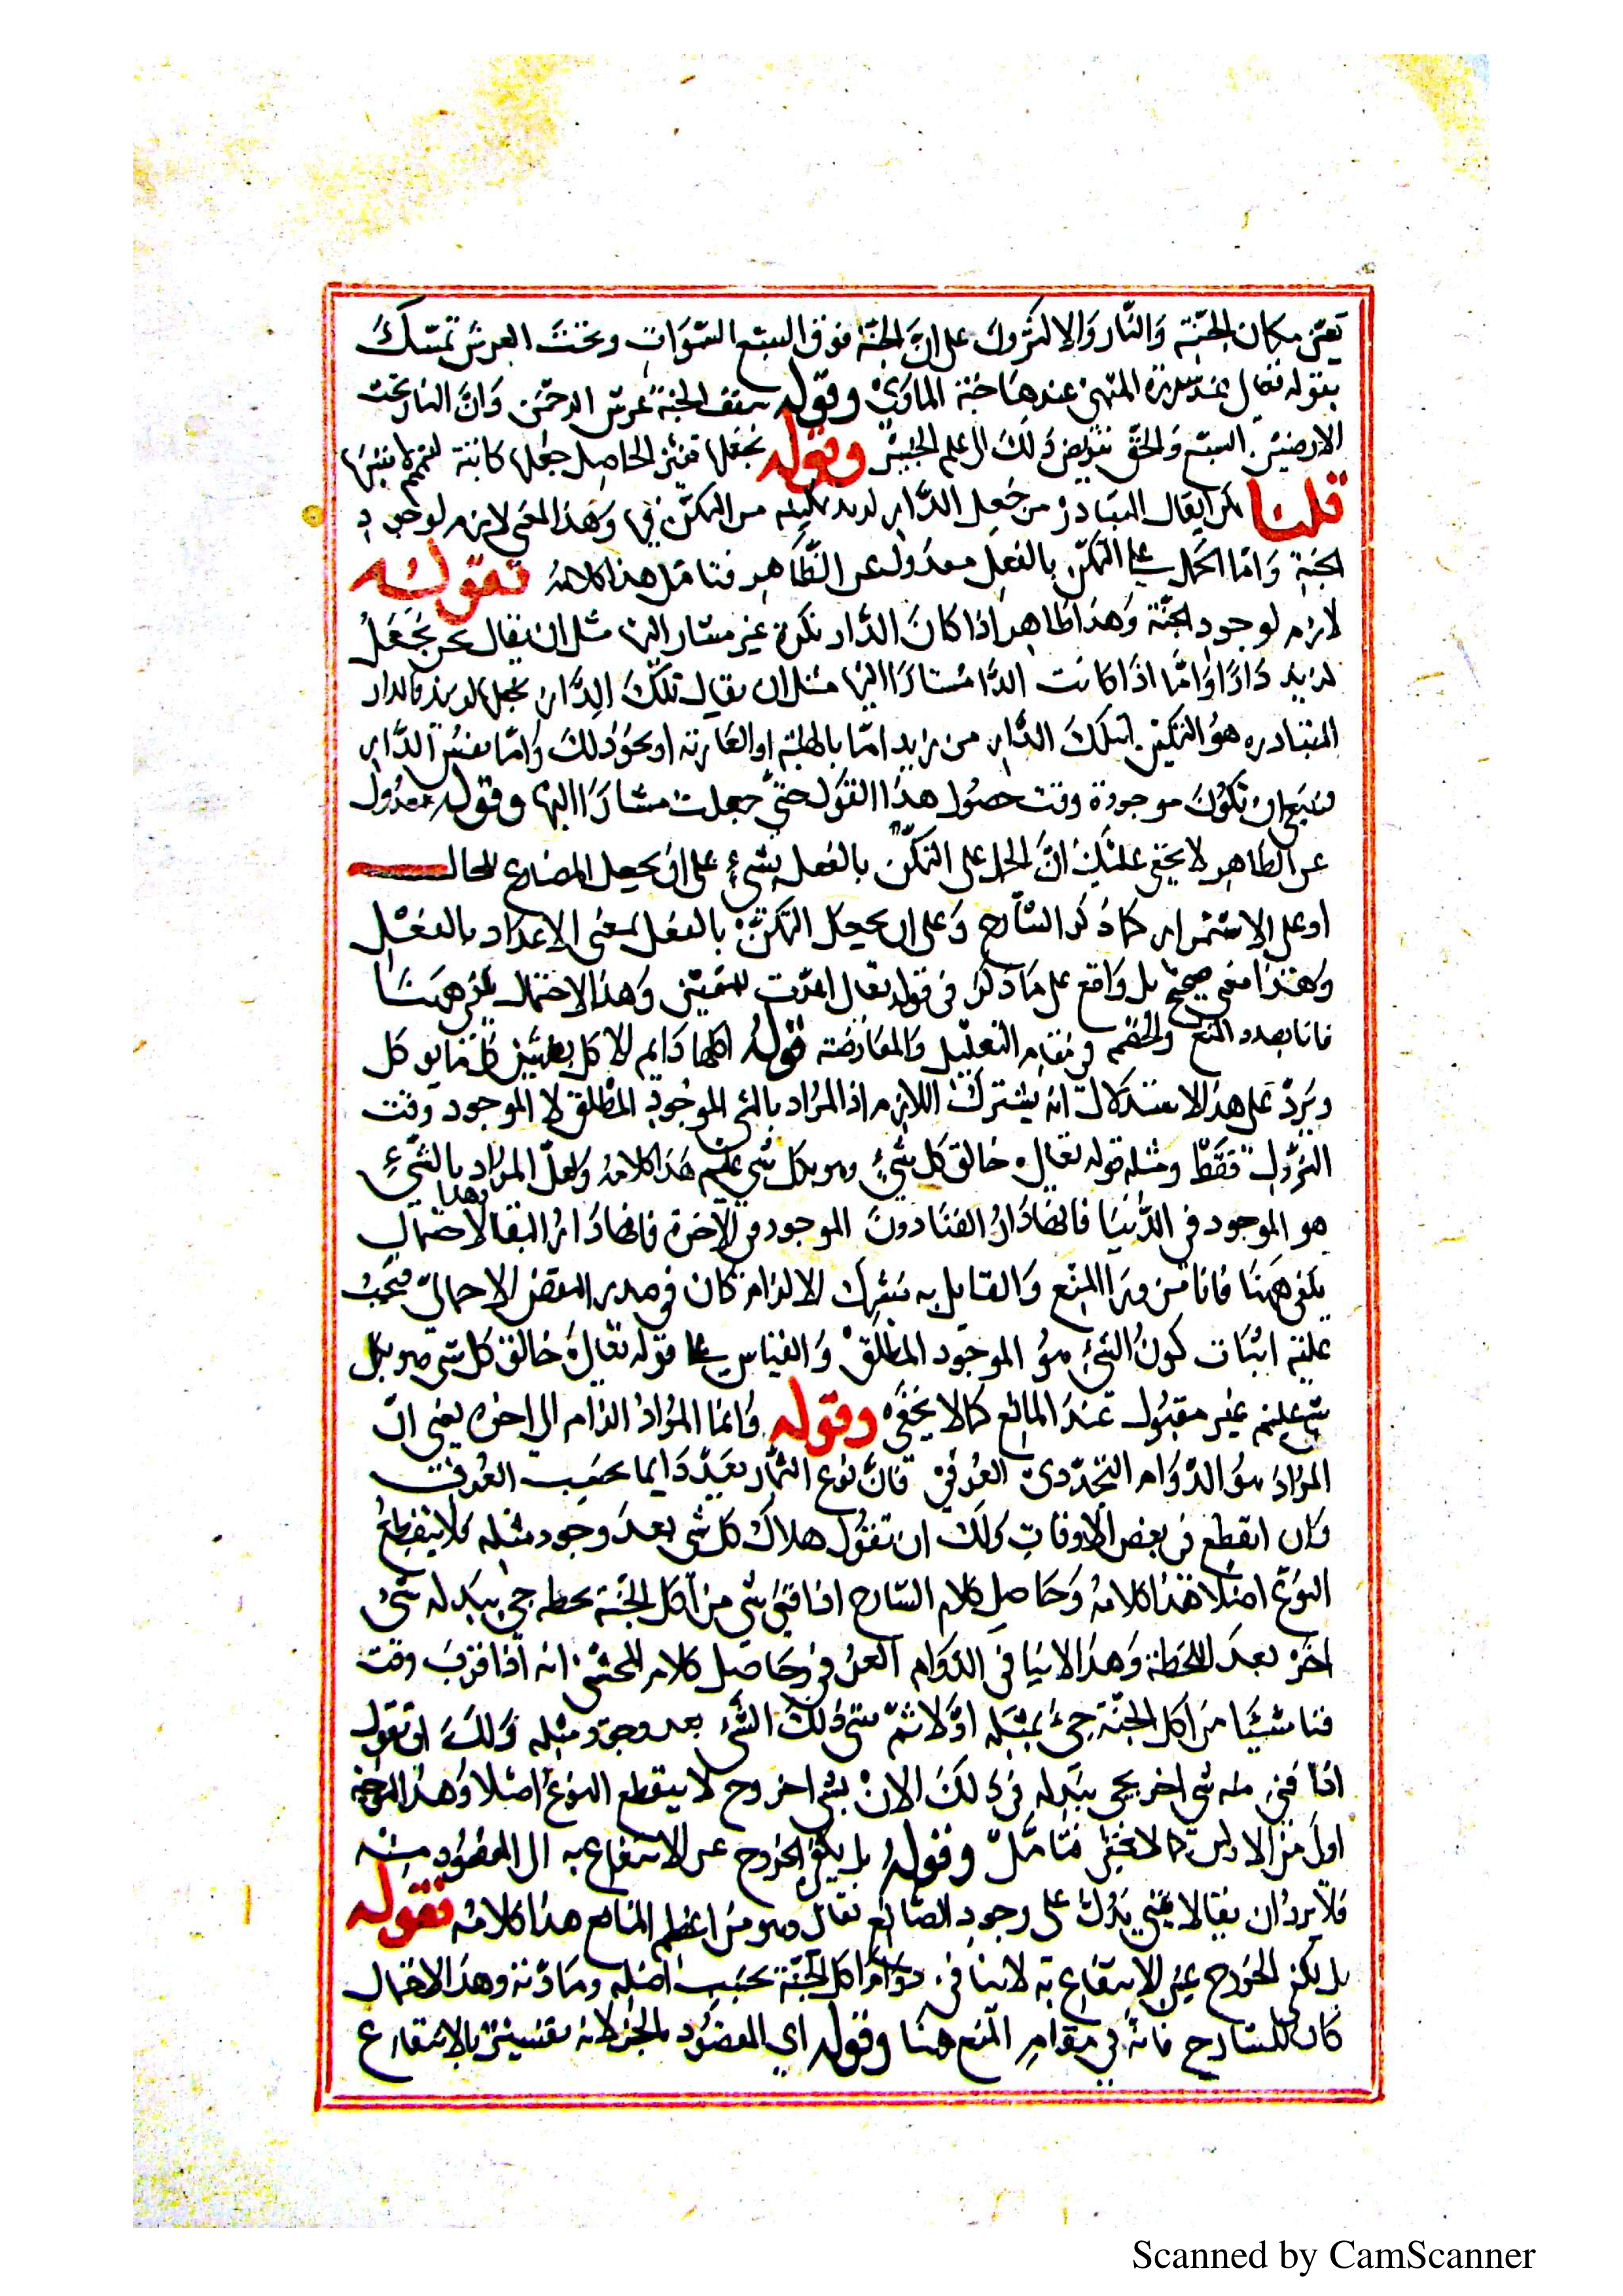 تعين مكان الجنة والنار والاكثرون على ان الجنة فوق السبع السموات وتحت العرش تمسكا
بقوله تعالى عند سدرة المنتهى عندها جنة الماوى وقوله سقف الجنة عرش الرحمن وان النار تحت
الارضين السبع والحق تفويض ذلك الى علم الخبير وقوله نجعلها
قلنا يقال المتبادر من جعل الدار لزيد تمكينه من التمكن فيها وهذا المعنى لازم لوجود
الجنة واما الحمل على التمكن بالفعل معدول عن الظاهر فتامل هذا كلامه فقوله
لازم لوجود الجنة وهذا ظاهر اذا كان الدار نكرة غير مشار اليها مثل ان يقال نحن نجعل
لزيد دارا واما اذا كانت الدار مشارا اليها مثل ان يقال تلك الدار نجعلها لزيد
المتبادر هو التمكين لتلك الدار من زيد اما بالهبة او العارية او نحو ذلك واما نفس الدار
فينبغي ان تكون موجودة وقت حصول هذا القول حتى جعلت مشارا اليها وقوله معدول
عن الظاهر لا يخفى عليك ان الحمل على التمكن بالفعل على ان يجعل المضارع للحال
او على الاستمرار كما ذكر الشارح وعلى ان يجعل التمكن بالفعل بمعنى الاعداد بالفعل
وهذا معنى صحيح بل واقع على ما ذكر في قوله تعالى اعدت للمتقين وهذا الاحتمال يكفي ههنا
فانا بصدد المنع والخصم في مقام التعليل والمعارضة قوله اكلها دايم
ويرد على هذا الاستدلال انه يشترك اللازم اذ المراد بالشي الموجود المطلق لا الموجود وقت
النزول فقط ومثله قوله تعالى خالق كل شيء وهو بكل شي عليم هذا كلامه ولعل المراد بالشيء
هو الموجود في الدنيا فانها دار الفنا دون الموجود في الاخرة فانها دار البقا بهذا الاحتمال
يكفي ههنا فانا من ورا المنع والقايل به مشترك الالزام كان في صدد النقض الاجمالي فيجب
عليه اثبات كون الشيء هو الموجود المطلق والقياس على قوله تعالى خالق كل شي وهو بكل
شي عليم غير مقبول عند المانع كما لا يخفى وقوله وانما المراد الدوام الى اخره يعني ان
المراد هو الدوام التجددي العرفي فان نوع الثمار يعد دايما بحسب العرف
وكان انقطع في بعض الاوقات ولك ان تقول هلاك كل شي بعد وجود مثله فلا ينقطع
النوع اصلا هذا كلامه وحاصل كلام الشارح اذا فني شي من اكل الجنة لحظة جي ببدله شي
اخر بعد اللحظة وهذا لا ينافي الدوام العرفي وحاصل كلام المحشي انه اذا قرب وقت
فنا شيئا من اكل الجنة جيء بمثله اولا ثم فني ذلك الشيء بعد وجود مثله ولك ان تقول
اذا فني منه شي اخر يجي ببدله في ذلك الان بشي اخر وح لا ينقطع النوع اصلا وهذا الوجه
اولى من الاولين كما لا يخفى فتامل وقوله بل يكفي الخروج عن الانتفاع به اي المقصود منه
فلا يرد ان يقال لا يفني يدل على وجود الصانع تعالى وهو من اعظم المنافع هذا كلامه فقوله
بل يكفي الخروج عن الانتفاع به لا ينافي دوام اكل الجنة بحسب اصله ومادته وهذا الاحتمال
كان للشارح فانه في مقام المنع هنا وقوله اي المقصود